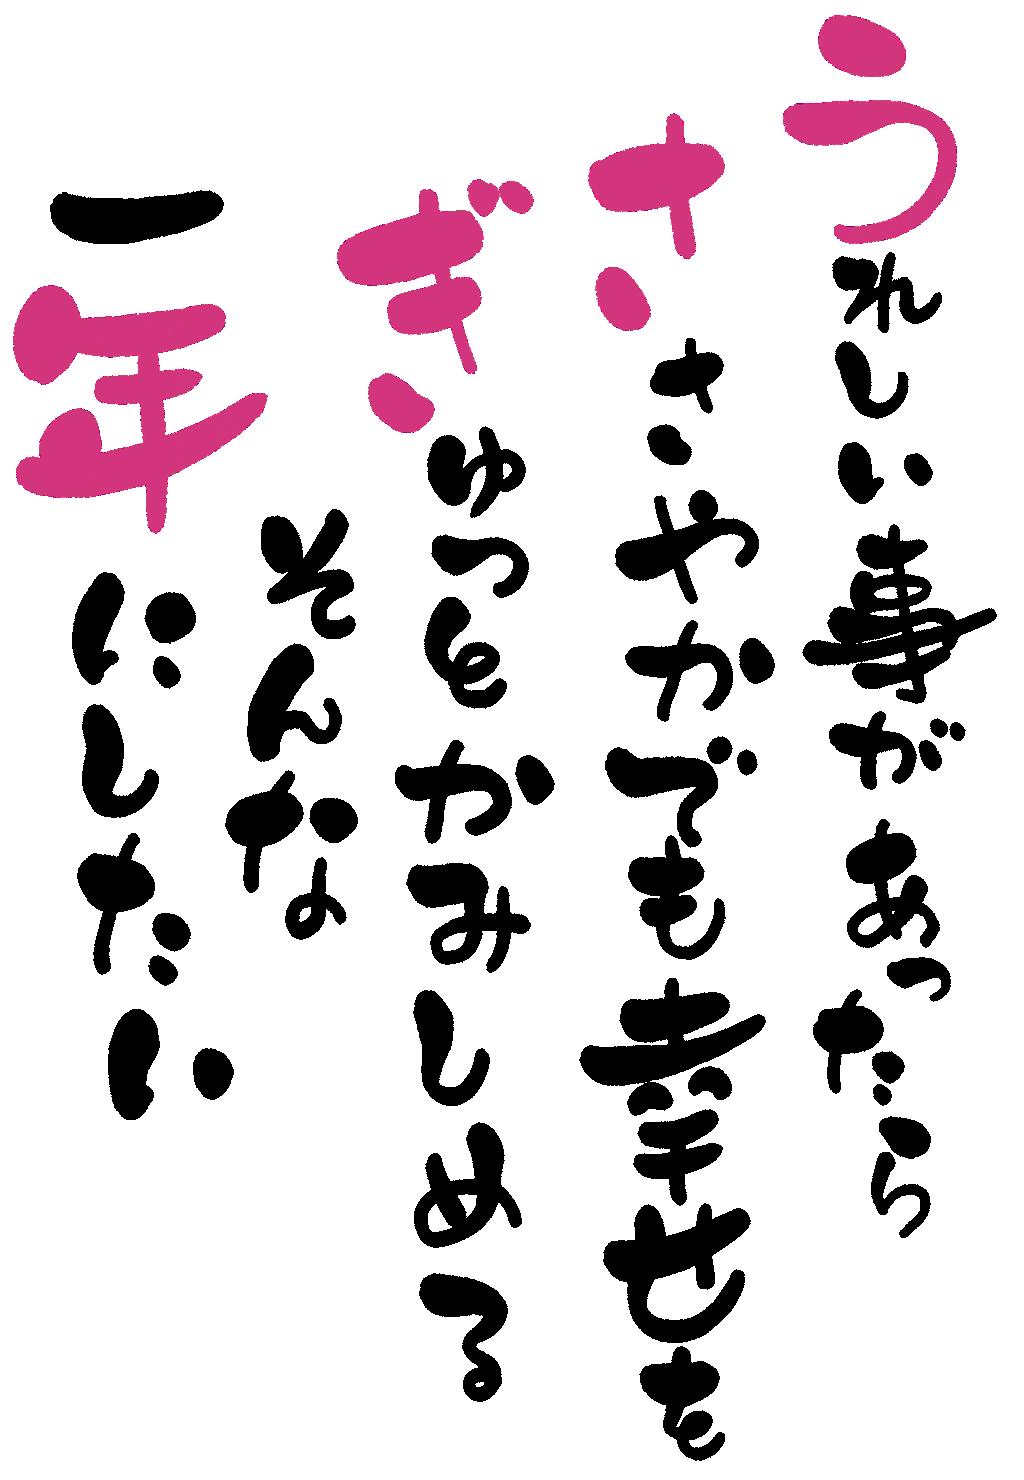 うれしい事があったら
ささやかでも幸せを
ぎゅっとかみしめる
そんな
一年にしたい